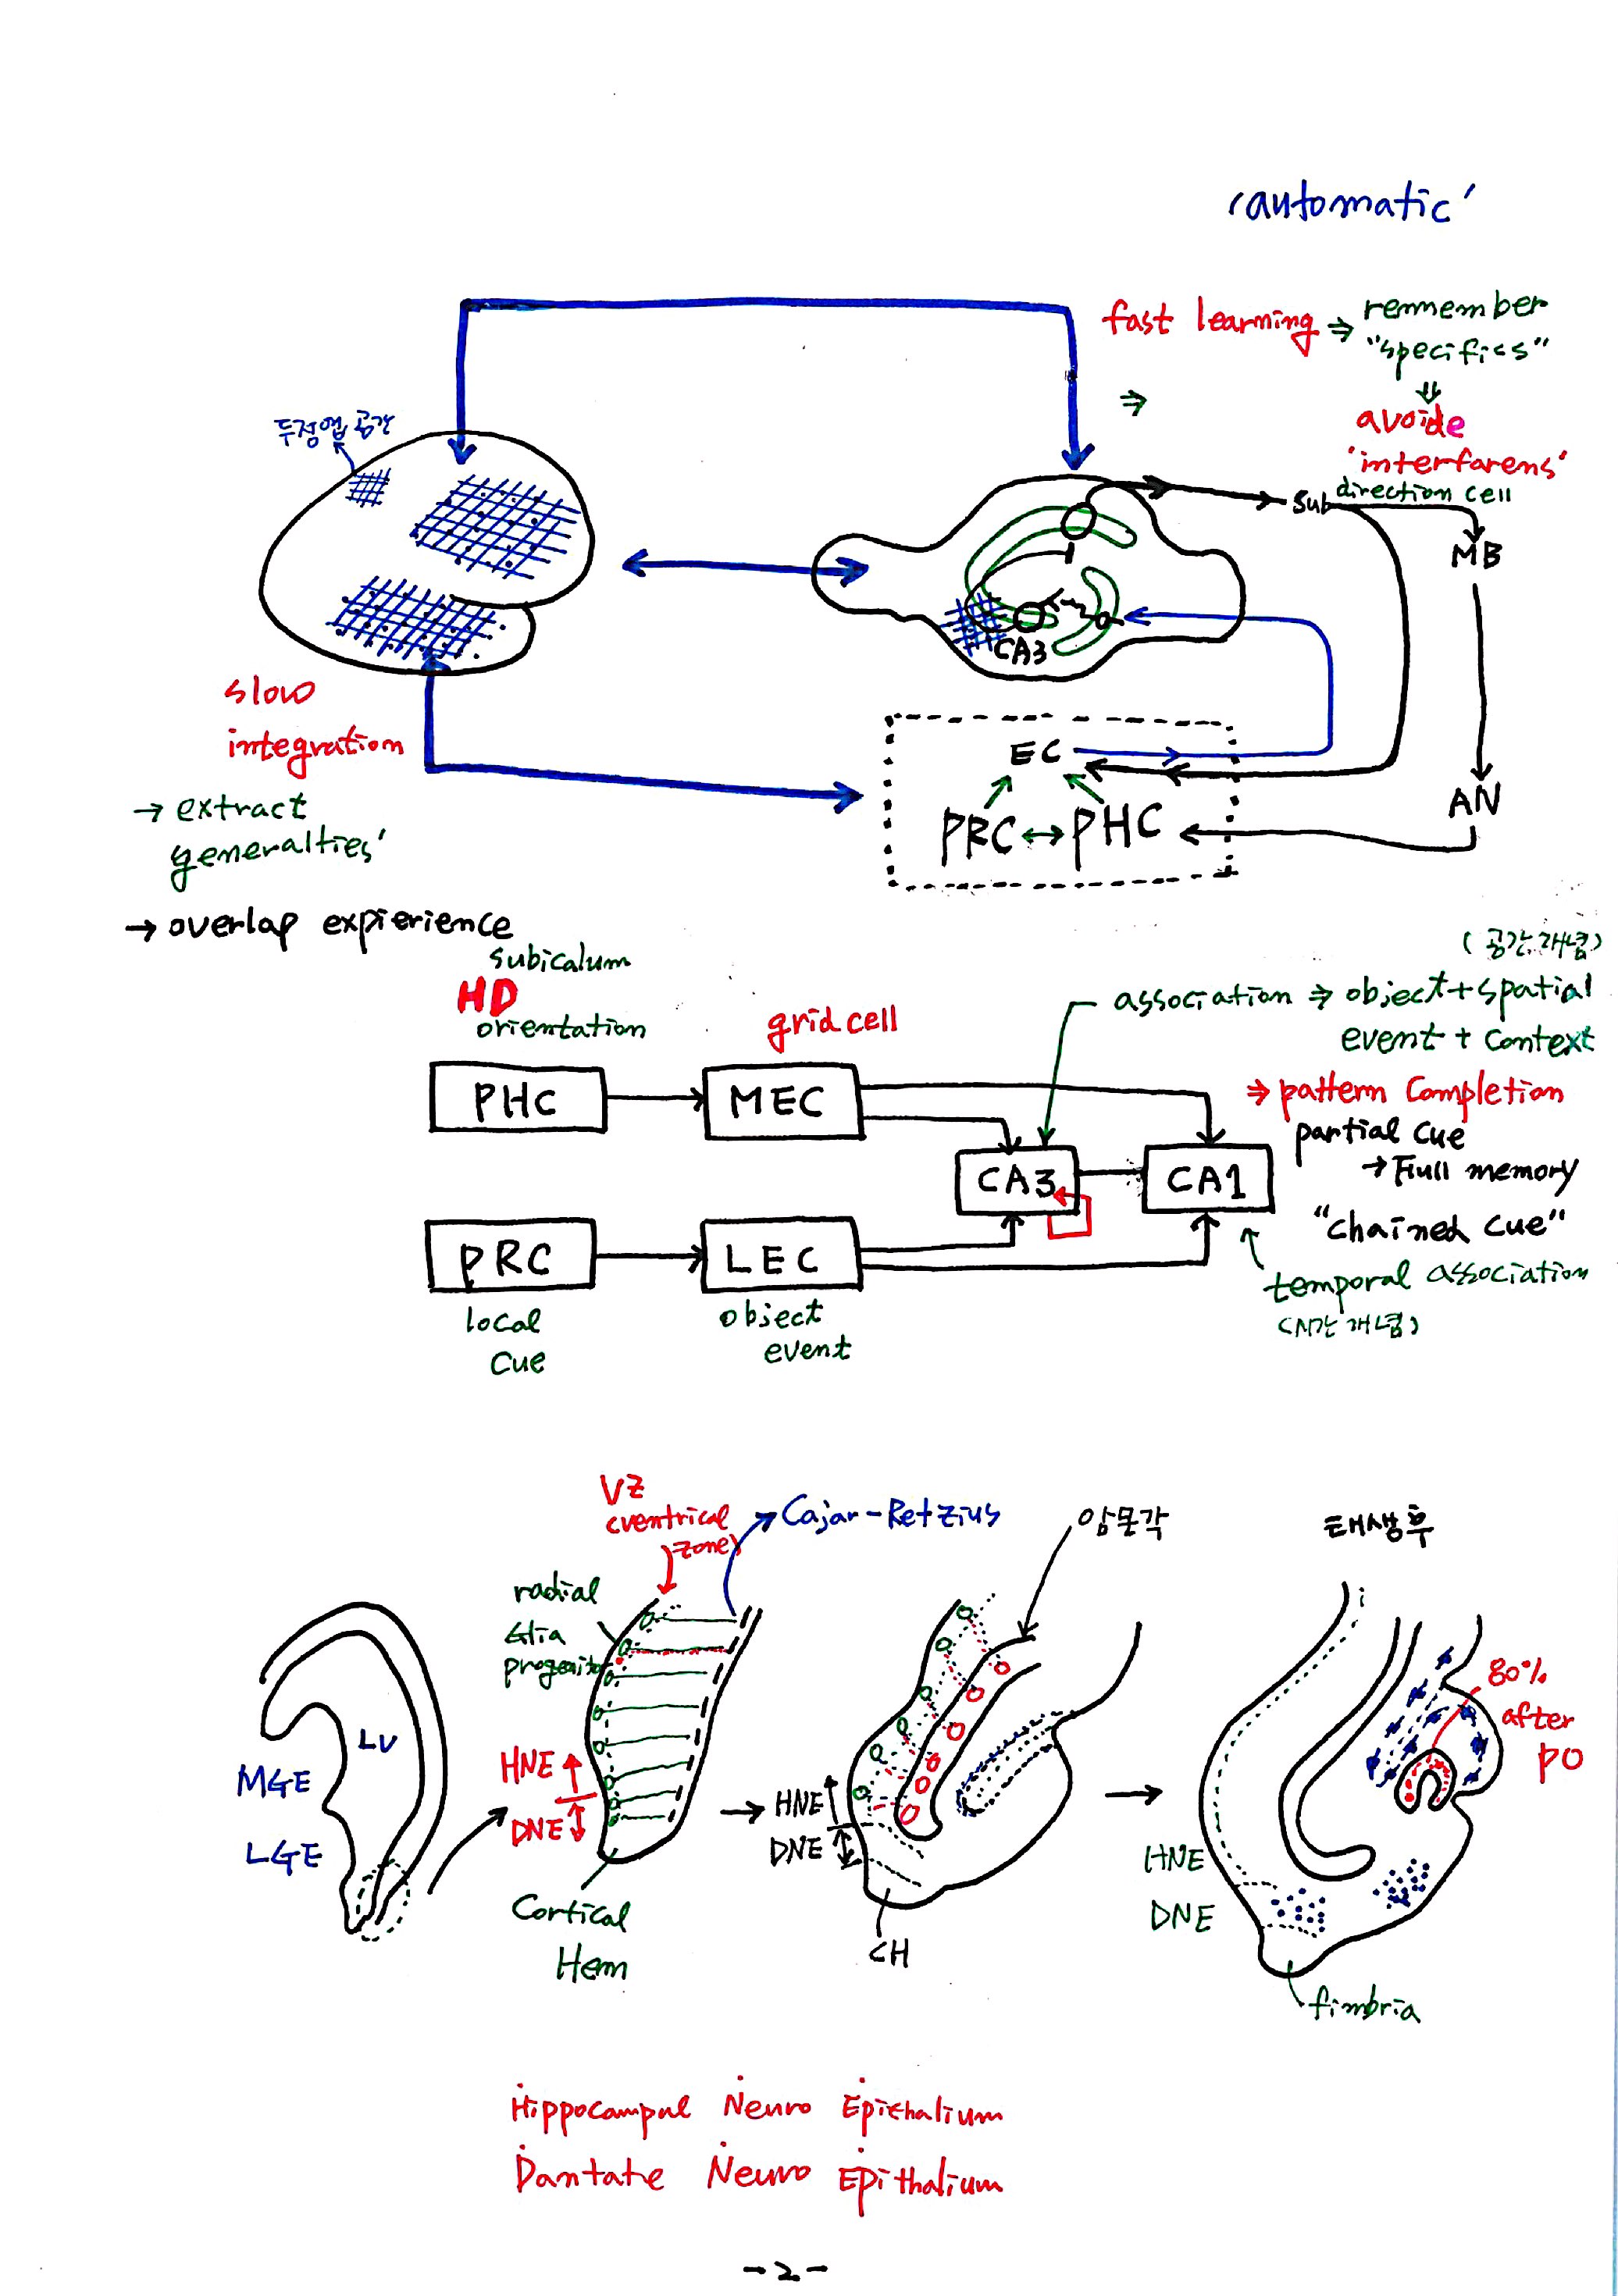 'automatic'
fast learning ⇒ remember
"specifics"
⇓
⇒
avoide
'interfarens'
direction cell
Sub
MB
두정엽 공간
CA3
slow
integration
EC
→ extract
generalties'
PRC ↔ PHC
AN
→ overlap expierience
subicalum
HD
orientation
grid cell
(공간개념)
association ⇒ object + spatial
event + context
PHC
MEC
⇒ pattern completion
partial cue
→ Full memory
CA3
CA1
"chained cue"
PRC
LEC
temporal association
(시간개념)
local
cue
object
event
VZ
(ventrical
zone)
Cajar-Retzius
암몬각
태생후
radial
Glia
progenitor
80%
after
PO
LV
MGE
LGE
HNE
DNE
HNE
DNE
HNE
DNE
Cortical
Hem
CH
fimbria
Hippocampul Neuro Epithalium
Dantate Neuro Epithalium
-2-